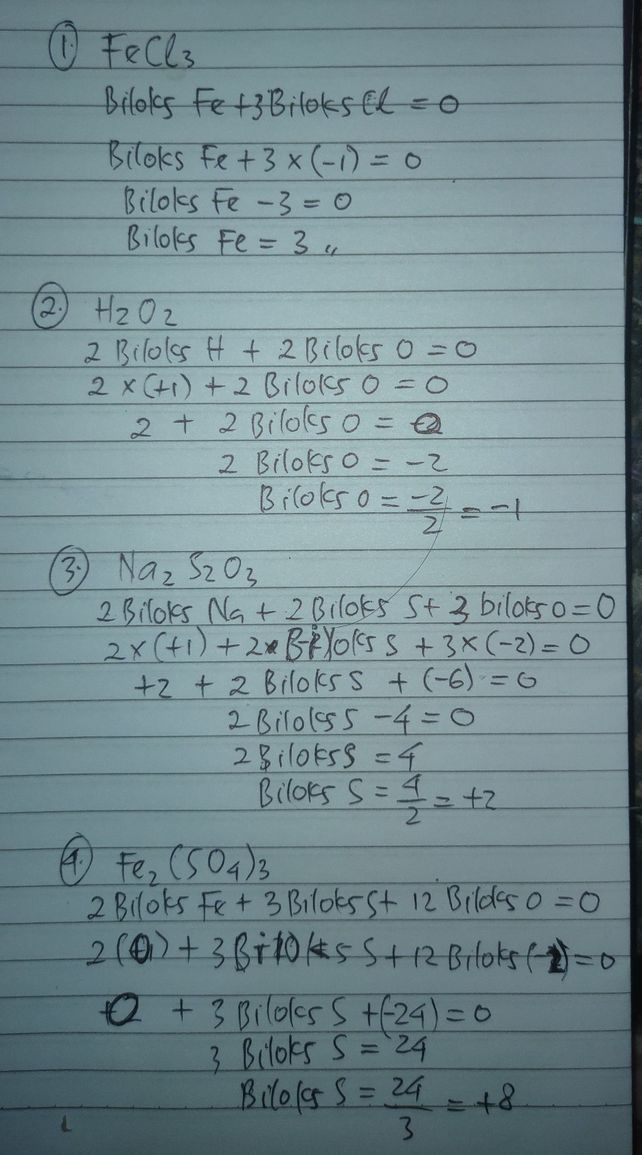 1. FeCl3
Biloks Fe + 3 Biloks Cl = 0
Biloks Fe + 3 × (-1) = 0
Biloks Fe - 3 = 0
Biloks Fe = 3 "
2. H2O2
2 Biloks H + 2 Biloks O = 0
2 × (+1) + 2 Biloks O = 0
2 + 2 Biloks O = 0
2 Biloks O = -2
Biloks O = -2/2 = -1
3. Na2S2O3
2 Biloks Na + 2 Biloks S + 3 biloks O = 0
2×(+1) + 2 × Biloks S + 3×(-2) = 0
+2 + 2 Biloks S + (-6) = 0
2 Biloks S - 4 = 0
2 Biloks S = 4
Biloks S = 4/2 = +2
4. Fe2(SO4)3
2 Biloks Fe + 3 Biloks S + 12 Biloks O = 0
2(0) + 3 Biloks S + 12 Biloks (-2) = 0
0 + 3 Biloks S + (-24) = 0
3 Biloks S = 24
Biloks S = 24/3 = +8